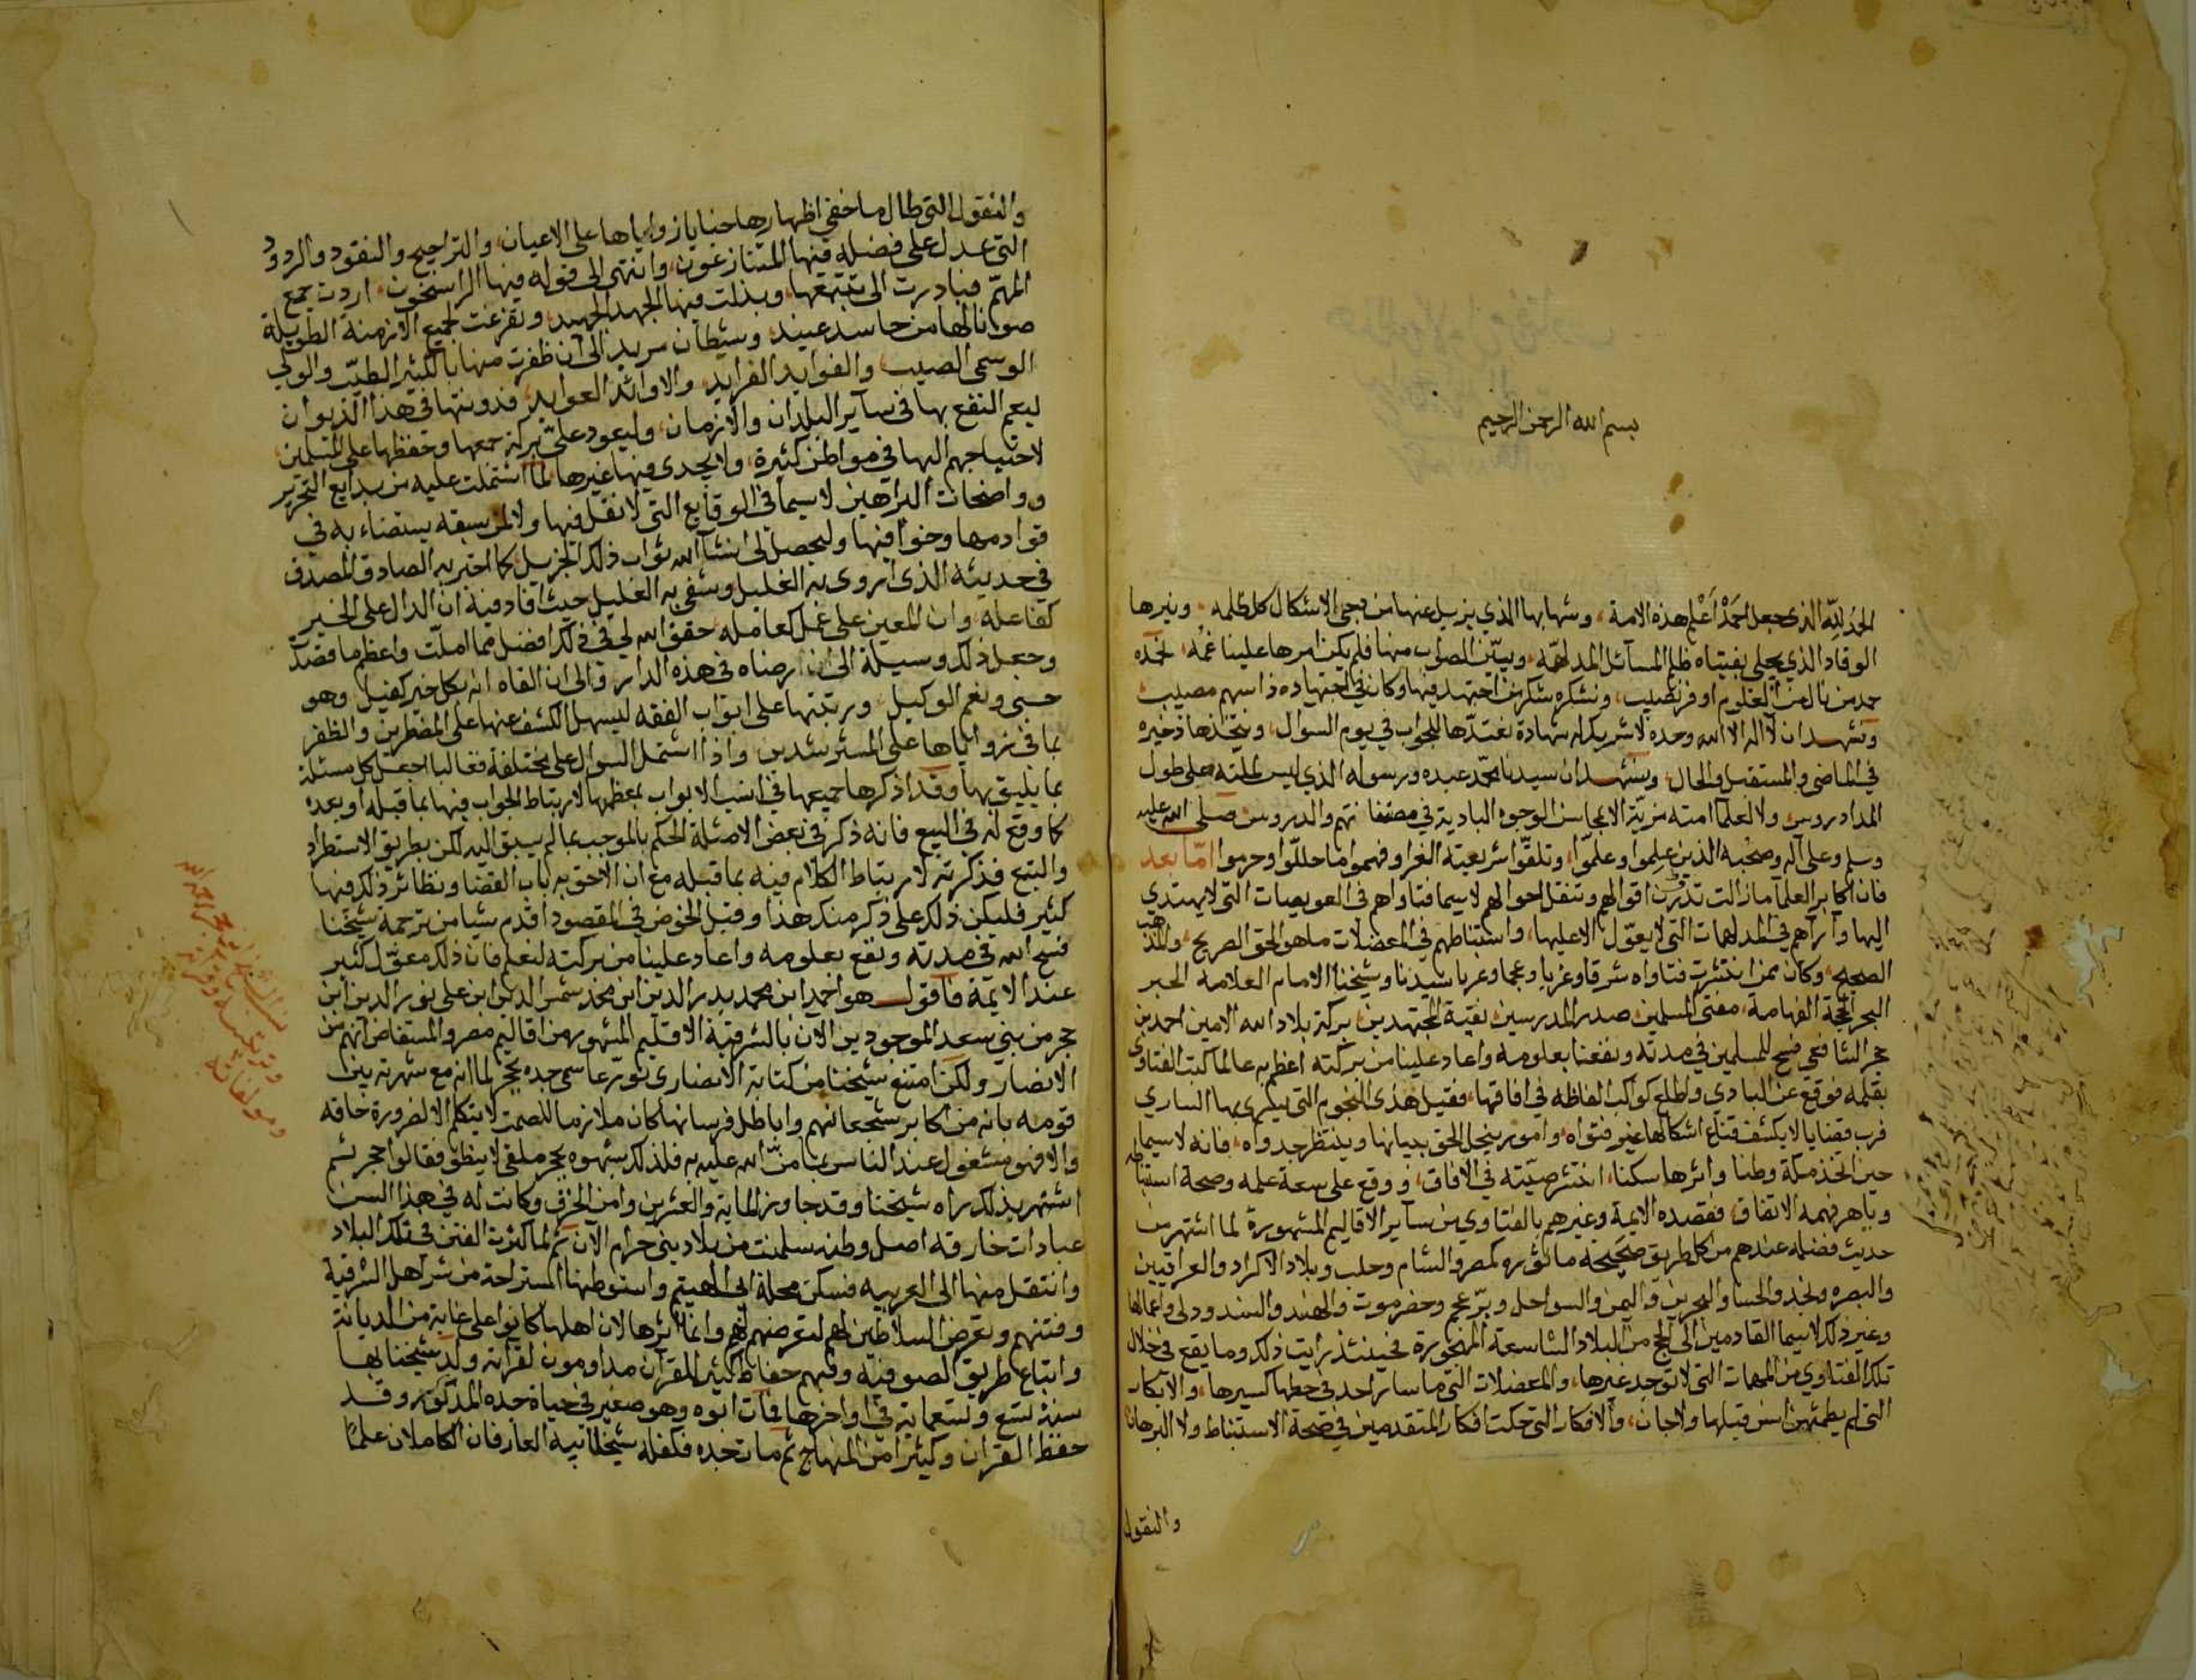 بسم الله الرحمن الرحيم
الحمد لله الذي جعل احمد اعلم هذه الامة، وشهابها الذي يزيل عنها من دجى الاشكال كل ظلمه، ونيرها
الوقاد الذي يجلي بفتياه ظلم المسائل المدلهمة، ويبين الصواب منها فلم يكن امرها علينا غمه، نحمده
حمد من نال من العلوم اوفر نصيب، ونشكره شكر من اجتهد فيها وكان في اجتهاده ذا سهم مصيب
ونشهد ان لا اله الا الله وحده لا شريك له شهادة نعتدها للجواب في يوم السوال، ونتخذها ذخيره
في الماضي والمستقبل والحال، ونشهد ان سيدنا محمد عبده ورسوله الذي ليس لملته على طول
المدا دروس ولا لعلما امته مزية الا بمحاسن الوجوه البادية في مصنفاتهم والدروس صلى الله عليه
وسلم وعلى آله وصحبه الذين علموا وعلموا، وتلقوا شريعته الغرا وفهموا ما حللوا وحرموا اما بعد
فان اكابر العلما ما زالت تدون اقوالهم وتنقل احوالهم لا سيما فتاواهم في العويصات التي لا يهتدى
اليها وآرآهم في المدلهمات التي لا يعول الا عليها، واستنباطهم في المعضلات ما هو الحق الصريح، والمذهب
الصحيح، وكان ممن انتشرت فتاواه شرقا وغربا وعجما وعربا سيدنا وشيخنا الامام العلامة الحبر
البحر الحجة الفهامة، مفتي المسلمين صدر المدرسين بقية المجتهدين بركة بلاد الله الامين احمد بن
حجر الشافعي فسح للمسلمين في مدته ونفعنا بعلومه واعاد علينا من بركته اعظم به عالما كتب الفتاوى
بقلمه فوقع عن البادي واطلع كواكب الفاظه في افاقها، فقيل هذي النجوم التي يسرى بها الساري
فرب قضايا لا يكشف قناع اشكالها غير فتواه، وامور ينجلى الحق ببيانها وينتظر جدواه، فانه لا سيما
حين اتخذ مكة وطنا واثرها سكنا، انتشر صيته في الافاق، ووقع على سعة علمه وصحة استنباطه
وباهر فهمه الاتفاق، فقصده الايمة وغيرهم بالفتاوي من سآير الاقاليم المشهورة لما اشتهر من
حديث فضله عندهم من كل طريق صحيحه ماثوره كمصر والشام وحلب وبلاد الاكراد والعراقيين
والبصره ونجد والحسا والبحرين واليمن والسواحل وبر عجم وحضرموت والهند والسند ودلى واعمالها
وغير ذلك لا سيما القادمين الى الحج من البلاد الشاسعة المهجورة فحينئذ رايت ذلك وما يقع في خلال
تلك الفتاوي من المهمات التي لا توجد غيرها، والمعضلات التي ما سار احد في خطها كسيرها، والابكار
التي لم يطمثهن انس قبلها ولا جان، والافكار التي حكت افكار المتقدمين في صحة الاستنباط ولا البرهان
والنقول
والنقول التي طال ما خفي اظهارها خبايا زواياها على الاعيان، والتراجيح والنقود والردود
التي عدل على فضله فيها المتنازعون، وانتهى الى قوله فيها الراسخون، اردت جمع
المهم فبادرت الى تتبعها، وبذلت فيها الجهد الجهيد، وتفرغت لجميع الازمنة الطويلة
صونا لها من حاسد عنيد، وشيطان مريد الى ان ظفرت منها بالكثير الطيب والولي
الوسمى الصيب، والفوايد الفرايد، والاوائد العوايد، فدونتها في هذا الديوان
ليعم النفع بها في سآير البلدان والازمان، وليعود علي بركة جمعها وحفظها على المسلمين،
لاحتياجهم اليها في مواطن كثيرة، ولا يجدى فيها غيرها لما اشتملت عليه من بدايع التحرير
وواضحات البراهين لا سيما في الوقايع التي لا نقل فيها ولا لمن سبقه يستضاء به في
قوادمها وخوافيها وليحصل لى انشا الله ثواب ذلك الجزيل كما اخبر به الصادق المصدق
في حديثه الذي يروى به الغليل ويشفى به العليل حيث افاد فيه ان الدال على الخير
كفاعله، وان المعين على عمل كعامله، حقق الله لي في ذلك افضل مما املت واعظم ما قصدت
وجعل ذلك وسيلة الى ان ارضاه في هذه الدار والى ان القاه انه بكل خير كفيل وهو
حسبي ونعم الوكيل، ورتبتها على ابواب الفقه ليسهل الكشف عنها على المضطرين والظفر
بما في زواياها على المسترشدين، واذا اشتمل السوال على مختلفة فغالبا اجعل كل مسئلة
بما يليق بها وقد اذكرها جميعها في انسب الابواب بمعظمها لارتباط الجواب فيها بما قبله او بعده
كما وقع له في البيع فانه ذكر في بعض الامثلة الحكم بالموجب بما لم يسبق اليه لكن بطريق الاستطراد
والتبع فذكرته لارتباط الكلام فيه بما قبله مع ان الاحق به باب القضا ونظائر ذلك فيها
كثير فليكن ذلك على ذكر منك هذا وقبل الخوض في المقصود اقدم شيا من ترجمة شيخنا
فسح الله في مدته ونفع بعلومه واعاد علينا من بركته لنعلم فان ذلك معول كثير
عند الايمة فاقول هو احمد ابن محمد بدر الدين ابن محمد شمس الدين ابن علي نور الدين ابن
حجر من بني سعد الموجودين الان بالشرقية الاقليم المشهور من اقاليم مصر والمستفاض انهم من
الانصار ولكن امتنع شيخنا من كتابة الانصاري تورعا سمى جده بحجر لما انه مع شهرته بين
قومه بانه من اكابر شجعانهم واباطل فرسانها كان ملازما للصمت لا يتكلم الا لضرورة خاقه
والا فهو مشغول عند الناس بما من الله عليه به فلذلك شبهوه بحجر ملقى لا ينطق فقالوا حجر ثم
اشتهر بذلك راه شيخنا وقد جاوز الماية والعشرين وامن الخرف وكانت له في هذا السن
عبادات خارقه اصل وطنه سلمنت من بلاد بني حرام الآن ثم لما كثرت الفتن في تلك البلاد
وانتقل منها الى الغربيه فسكن محلة ابي الهيتم واستوطنها لاستراحة من شر اهل الشرقية
وفتنهم وتعرض السلاطين لهم لتعرضهم لهم وانما اثرها لان اهلها كانوا على غاية من الديانة
واتباع طريق الصوفيه وفيهم حفاظ كثير للقرآن مداومون لقراته ولد شيخنا بها
سنة تسع وتسعماية في اواخرها فمات ابوه وهو صغير في حياة جده المذكور وقد
حفظ القران وكثيرا من المنهاج ثم مات جده فكفله شيخا ابيه العارفان الكاملان علما